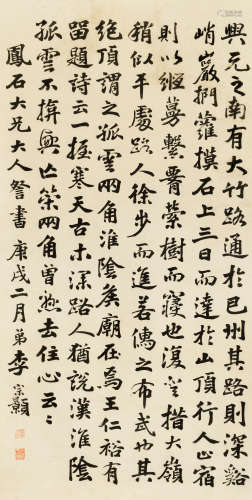 興元之南有大竹路通於巴州其路則深谿
峭巖捫蘿摸石上三日而達於山頂行人止宿
則以絙蔓繫腰縈樹而寢也復登措大嶺
稍似平處路人徐步而進若儒之布武也其
絕頂謂之孤雲兩角淮陰侯廟在焉王仁裕有
留題詩云一握寒天古木深路人猶說漢淮陰
孤雲不揜興亡策兩角曾懸去住心云〻
鳳石大兄大人詧書 庚戌二月弟李宗顥